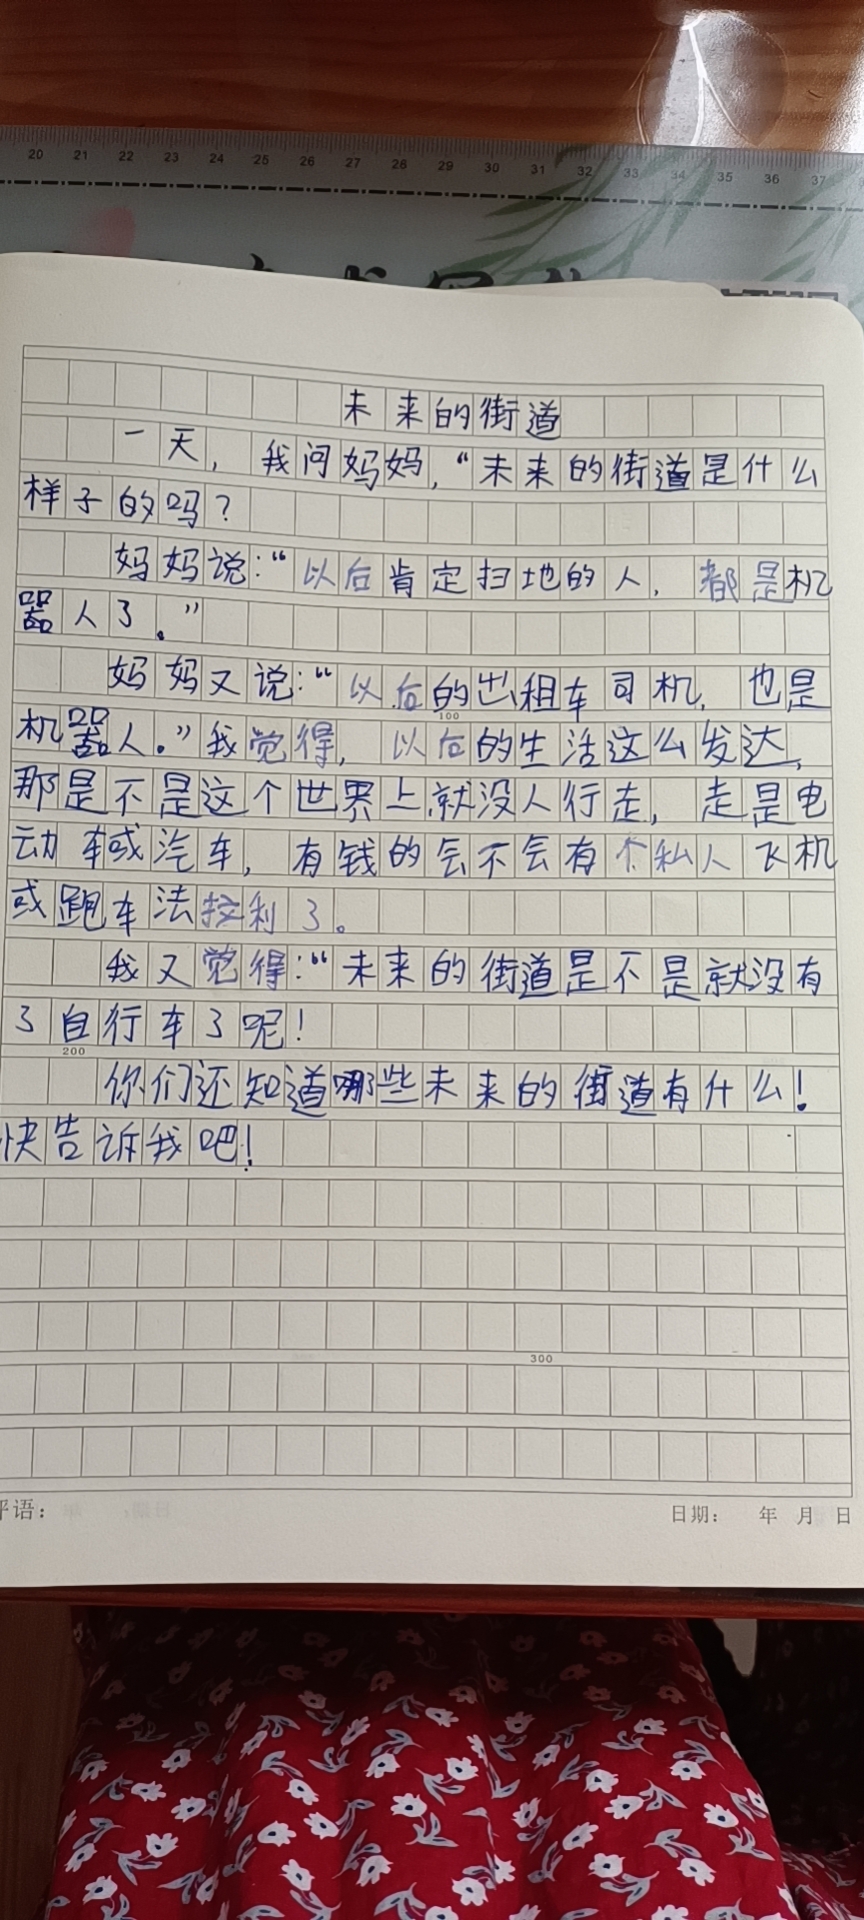 20 21 22 23 24 25 26 27 28 29 30 31 32 33 34 35 36 37
未来的街道
一天，我问妈妈，“未来的街道是什么
样子的吗？
妈妈说：“以后肯定扫地的人，都是机
器人了。”
妈妈又说：“以后的出租车司机，也是
100
机器人。”我觉得，以后的生活这么发达，
那是不是这个世界上就没人行走，走是电
动车或汽车，有钱的会不会有个私人飞机
或跑车法拉利了。
我又觉得：“未来的街道是不是就没有
了自行车了呢！
200
你们还知道哪些未来的街道有什么！
快告诉我吧！
300
评语：
日期： 年 月 日